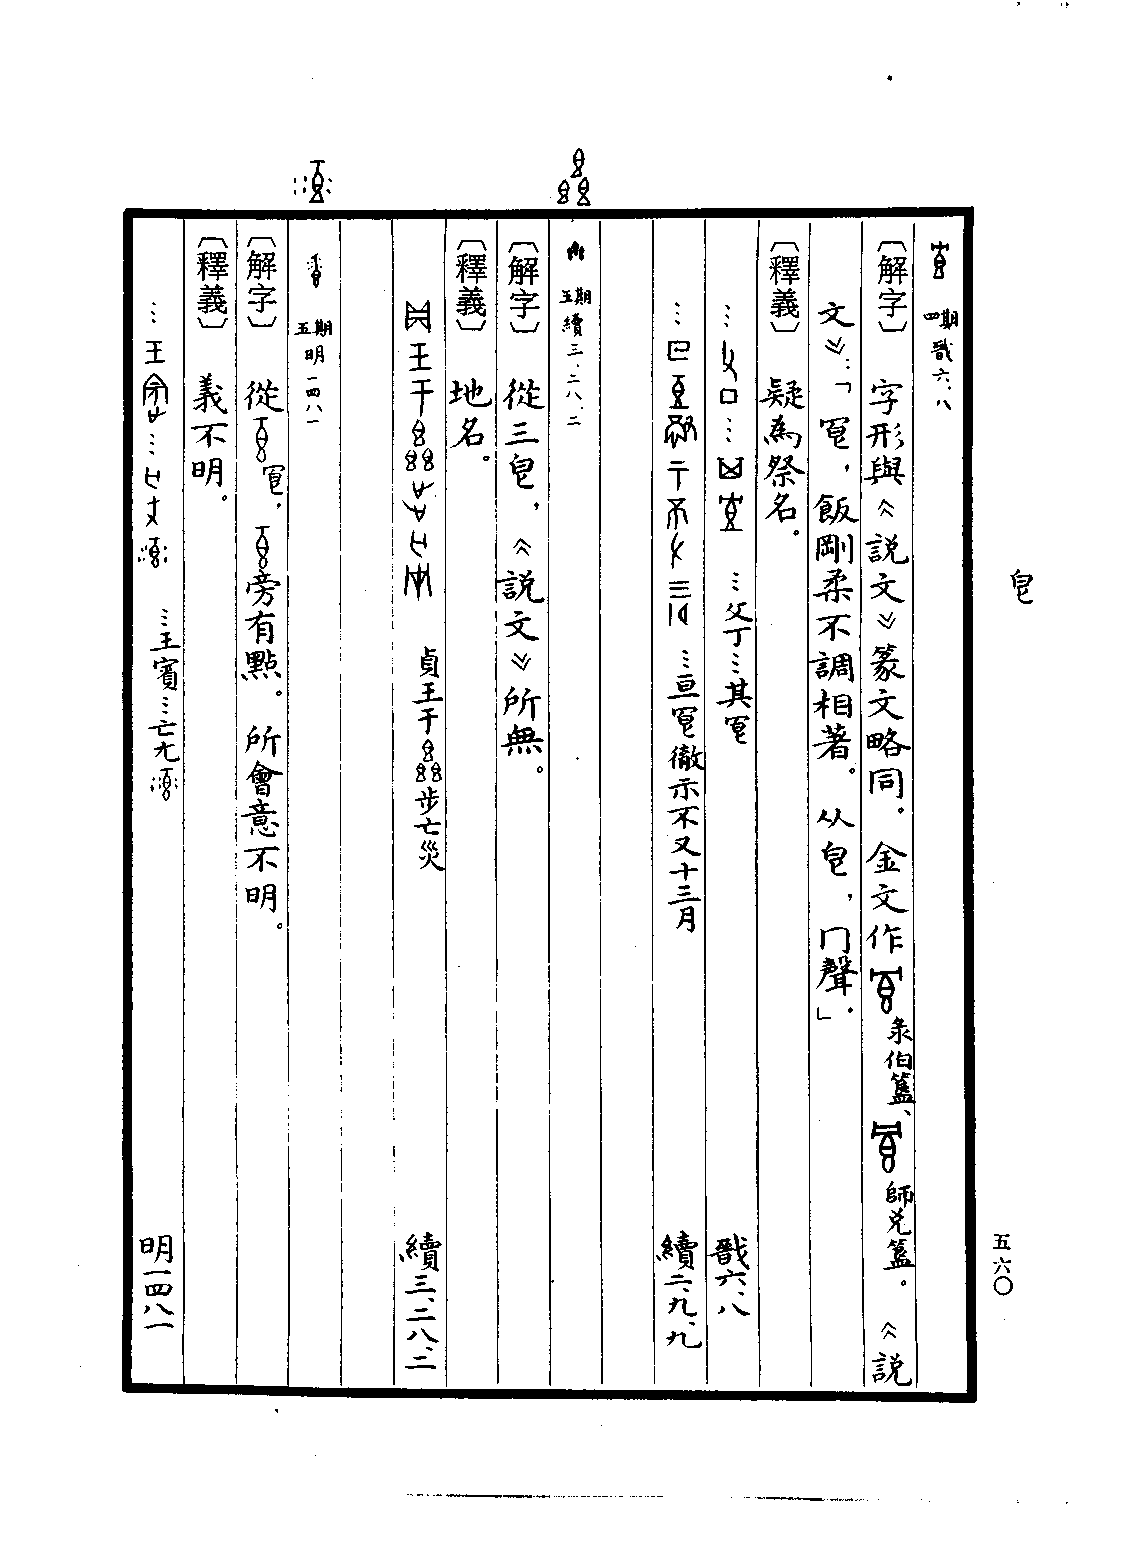 皀
五六〇
四期
戩六.八
〔解字〕字形與《説文》篆文略同。金文作 彔伯簋、 師兌簋。《説
文》：「冟，飯剛柔不調相著。从皀，冂聲。」
〔釋義〕疑為祭名。
…父丁…其冟 戩六、八
…亘冟徹示不又十三月 續二、九、九
五期
續三.二八.二
〔解字〕從三皀，《説文》所無。
〔釋義〕地名。
貞王于 步亡災 續三、二八、二
五期
明一四八一
〔解字〕從 冟， 旁有點。所會意不明。
〔釋義〕義不明。
…王賓…亡尤 明一四八一